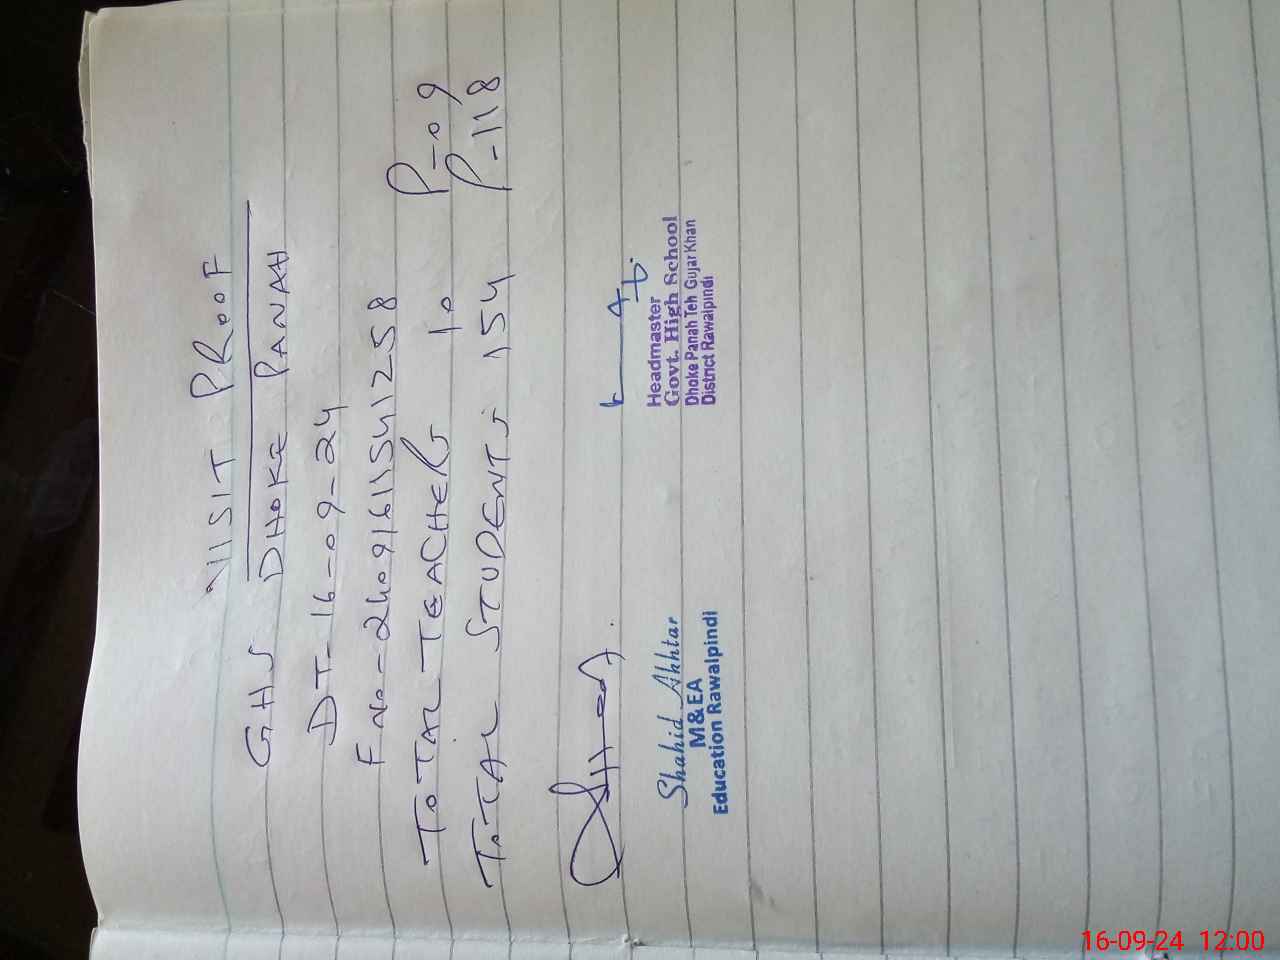 VISIT PROOF
GHS DHOKE PANAH
DT- 16-09-24
F No- 24091611541258
TOTAL TEACHERS 10 P-09
TOTAL STUDENTS 154 P-118
Shahid Akhtar
M&EA
Education Rawalpindi
Headmaster
Govt. High School
Dhoke Panah Teh Gujar Khan
District Rawalpindi
16-09-24 12:00